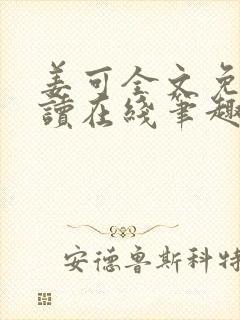 姜可全文免
讀在綫筆趣
安德魯斯科特